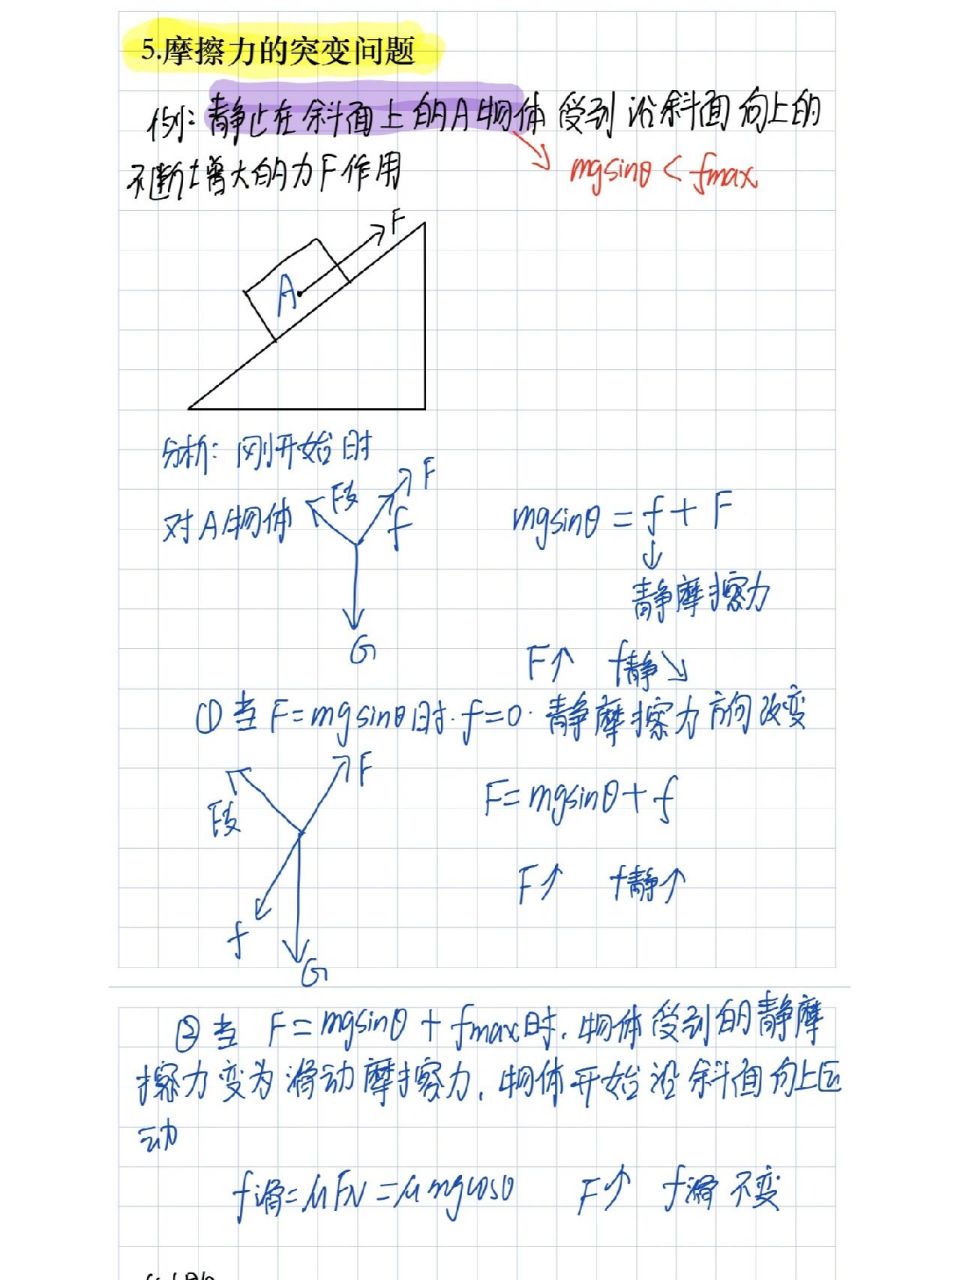 5.摩擦力的突变问题
例:静止在斜面上的A物体受到沿斜面向上的
不断增大的力F作用
mgsinθ < fmax
F
A
分析:刚开始时
对A物体
F支
F
f
G
mgsinθ = f + F
静摩擦力
F↑ f静↘
①当F=mgsinθ时.f=0.静摩擦力方向改变
F支
F
f
G
F=mgsinθ+f
F↑ f静↑
②当 F=mgsinθ + fmax时.物体受到的静摩
擦力变为滑动摩擦力.物体开始沿斜面向上运
动
f滑=μFN=μmgcosθ F↑ f滑不变